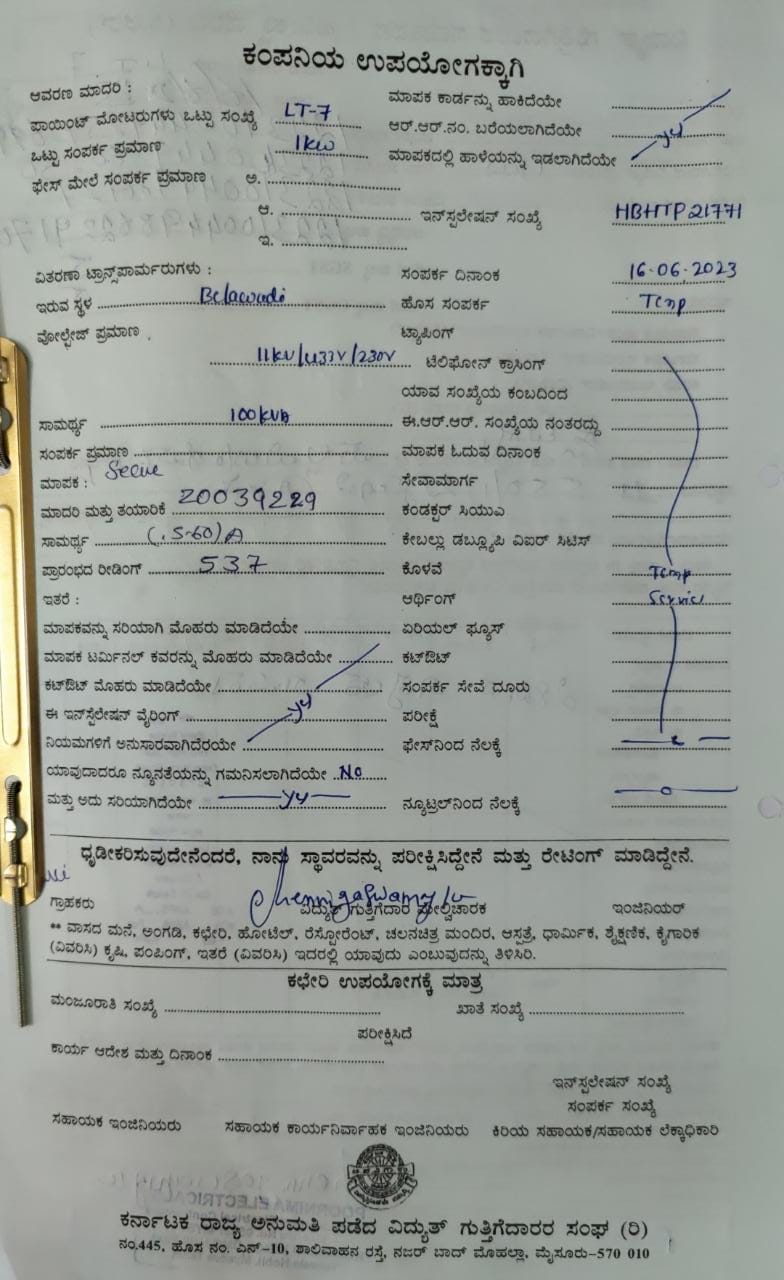 ಕಂಪನಿಯ ಉಪಯೋಗಕ್ಕಾಗಿ
ಆವರಣ ಮಾದರಿ : ಮಾಪಕ ಕಾರ್ಡನ್ನು ಹಾಕಿದೆಯೇ
ಪಾಯಿಂಟ್ ಮೋಟರುಗಳು ಒಟ್ಟು ಸಂಖ್ಯೆ LT-7 ಆರ್.ಆರ್.ನಂ. ಬರೆಯಲಾಗಿದೆಯೇ
ಒಟ್ಟು ಸಂಪರ್ಕ ಪ್ರಮಾಣ 1kw ಮಾಪಕದಲ್ಲಿ ಹಾಳೆಯನ್ನು ಇಡಲಾಗಿದೆಯೇ
ಫೇಸ್ ಮೇಲೆ ಸಂಪರ್ಕ ಪ್ರಮಾಣ ಅ.
ಆ. ಇನ್‌ಸ್ಪಲೇಷನ್ ಸಂಖ್ಯೆ HBHTP21771
ಇ.
ವಿತರಣಾ ಟ್ರಾನ್ಸ್‌ಪಾರ್ಮರುಗಳು : ಸಂಪರ್ಕ ದಿನಾಂಕ 16-06.2023
ಇರುವ ಸ್ಥಳ Belawadi ಹೊಸ ಸಂಪರ್ಕ Temp
ವೋಲ್ಟೇಜ್ ಪ್ರಮಾಣ ಟ್ಯಾಪಿಂಗ್
11kV/433V/230V ಟೆಲಿಫೋನ್ ಕ್ರಾಸಿಂಗ್
ಯಾವ ಸಂಖ್ಯೆಯ ಕಂಬದಿಂದ
ಸಾಮರ್ಥ್ಯ 100kVA ಈ.ಆರ್.ಆರ್. ಸಂಖ್ಯೆಯ ನಂತರದ್ದು
ಸಂಪರ್ಕ ಪ್ರಮಾಣ ಮಾಪಕ ಓದುವ ದಿನಾಂಕ
ಮಾಪಕ : ಸೇವಾಮಾರ್ಗ
ಮಾದರಿ ಮತ್ತು ತಯಾರಿಕೆ 20039229 ಕಂಡಕ್ಟರ್ ಸಿಯುಎ
ಸಾಮರ್ಥ್ಯ (.5-60)A ಕೇಬಲ್ಲು ಡಬ್ಲ್ಯೂಪಿ ವಿಐರ್ ಸಿಟಿಸ್
ಪ್ರಾರಂಭದ ರೀಡಿಂಗ್ 537 ಕೊಳವೆ Temp
ಇತರೆ : ಆರ್ಥಿಂಗ್ Service
ಮಾಪಕವನ್ನು ಸರಿಯಾಗಿ ಮೊಹರು ಮಾಡಿದೆಯೇ ಏರಿಯಲ್ ಫ್ಯೂಸ್
ಮಾಪಕ ಟರ್ಮಿನಲ್ ಕವರನ್ನು ಮೊಹರು ಮಾಡಿದೆಯೇ ಕಟ್‌ಔಟ್
ಕಟ್‌ಔಟ್ ಮೊಹರು ಮಾಡಿದೆಯೇ ಸಂಪರ್ಕ ಸೇವೆ ದೂರು
ಈ ಇನ್‌ಸ್ಟಲೇಷನ್ ವೈರಿಂಗ್ ಪರೀಕ್ಷೆ
ನಿಯಮಗಳಿಗೆ ಅನುಸಾರವಾಗಿದೆರಯೇ ಫೇಸ್‌ನಿಂದ ನೆಲಕ್ಕೆ
ಯಾವುದಾದರೂ ನ್ಯೂನತೆಯನ್ನು ಗಮನಿಸಲಾಗಿದೆಯೇ No
ಮತ್ತು ಅದು ಸರಿಯಾಗಿದೆಯೇ ನ್ಯೂಟ್ರಲ್‌ನಿಂದ ನೆಲಕ್ಕೆ
ಧೃಡೀಕರಿಸುವುದೇನೆಂದರೆ, ನಾನು ಸ್ಥಾವರವನ್ನು ಪರೀಕ್ಷಿಸಿದ್ದೇನೆ ಮತ್ತು ರೇಟಿಂಗ್ ಮಾಡಿದ್ದೇನೆ.
ಗ್ರಾಹಕರು ವಿದ್ಯುತ್ ಗುತ್ತಿಗೆದಾರ ಮೇಲ್ವಿಚಾರಕ ಇಂಜಿನಿಯರ್
** ವಾಸದ ಮನೆ, ಅಂಗಡಿ, ಕಛೇರಿ, ಹೋಟೆಲ್, ರೆಸ್ಟೋರೆಂಟ್, ಚಲನಚಿತ್ರ ಮಂದಿರ, ಆಸ್ಪತ್ರೆ, ಧಾರ್ಮಿಕ, ಶೈಕ್ಷಣಿಕ, ಕೈಗಾರಿಕ
(ವಿವರಿಸಿ) ಕೃಷಿ, ಪಂಪಿಂಗ್, ಇತರೆ (ವಿವರಿಸಿ) ಇದರಲ್ಲಿ ಯಾವುದು ಎಂಬುವುದನ್ನು ತಿಳಿಸಿರಿ.
ಕಛೇರಿ ಉಪಯೋಗಕ್ಕೆ ಮಾತ್ರ
ಮಂಜೂರಾತಿ ಸಂಖ್ಯೆ ಖಾತೆ ಸಂಖ್ಯೆ
ಪರೀಕ್ಷಿಸಿದೆ
ಕಾರ್ಯ ಆದೇಶ ಮತ್ತು ದಿನಾಂಕ
ಇನ್‌ಸ್ಪಲೇಷನ್ ಸಂಖ್ಯೆ
ಸಂಪರ್ಕ ಸಂಖ್ಯೆ
ಸಹಾಯಕ ಇಂಜಿನಿಯರು ಸಹಾಯಕ ಕಾರ್ಯನಿರ್ವಾಹಕ ಇಂಜಿನಿಯರು ಕಿರಿಯ ಸಹಾಯಕ/ಸಹಾಯಕ ಲೆಕ್ಕಾಧಿಕಾರಿ
ಕರ್ನಾಟಕ ರಾಜ್ಯ ಅನುಮತಿ ಪಡೆದ ವಿದ್ಯುತ್ ಗುತ್ತಿಗೆದಾರರ ಸಂಘ (ರಿ)
ನಂ.445, ಹೊಸ ನಂ. ಎನ್-10, ಶಾಲಿವಾಹನ ರಸ್ತೆ, ನಜರ್ ಬಾದ್ ಮೊಹಲ್ಲಾ, ಮೈಸೂರು-570 010